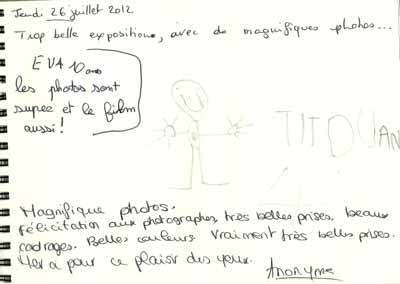 Jeudi 26 juillet 2012
Trop belle expositions, avec de magnifiques photos...
EVA 10 ans
les photos sont
super et le film
aussi!
TITOUAN
Magnifique photos.
félicitation aux photographes, très belles prises, beaux
cadrages. Belles couleurs. Vraiment très belles prises.
Merci pour ce plaisir des yeux.
Anonyme